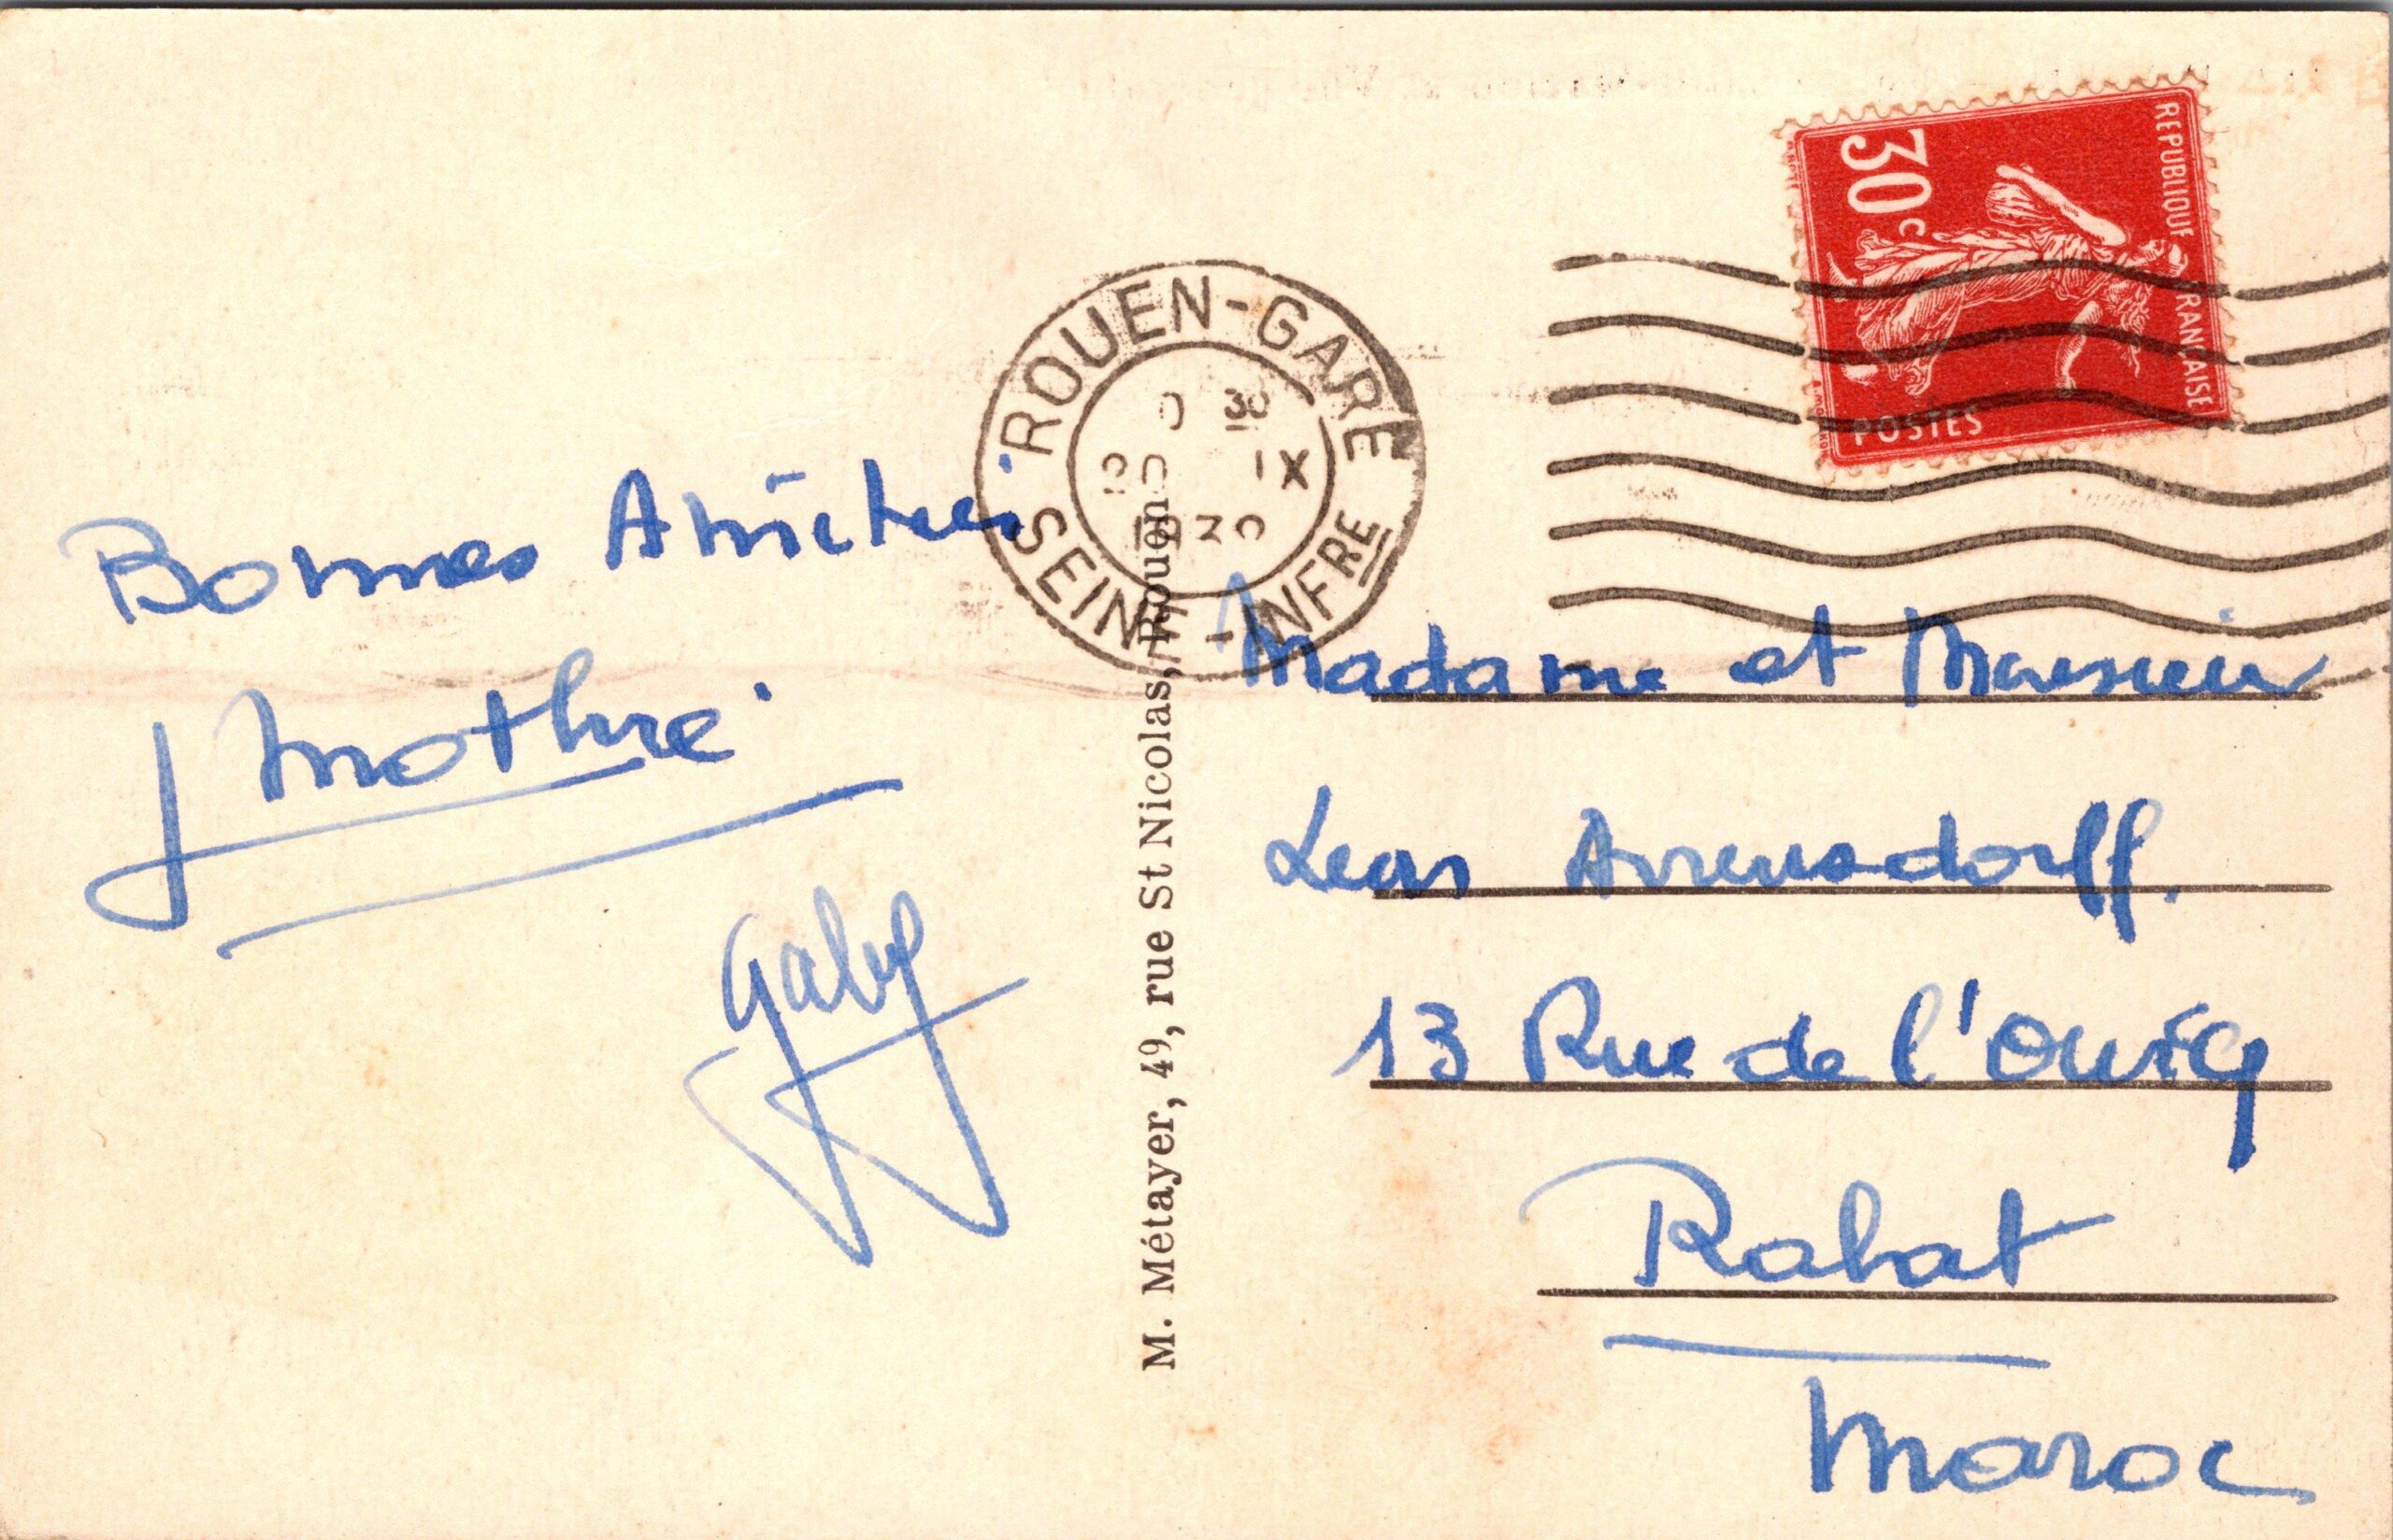 Bonnes Amitiés
J Mothré
Gaby
M. Métayer, 49, rue St Nicolas, Rouen
ROUEN-GARE
30
IX
SEINE-INFRE
REPUBLIQUE FRANÇAISE
30c
POSTES
Madame et Monsieur
Leon Arrensdorff.
13 Rue de l'Ourcq
Rabat
Maroc